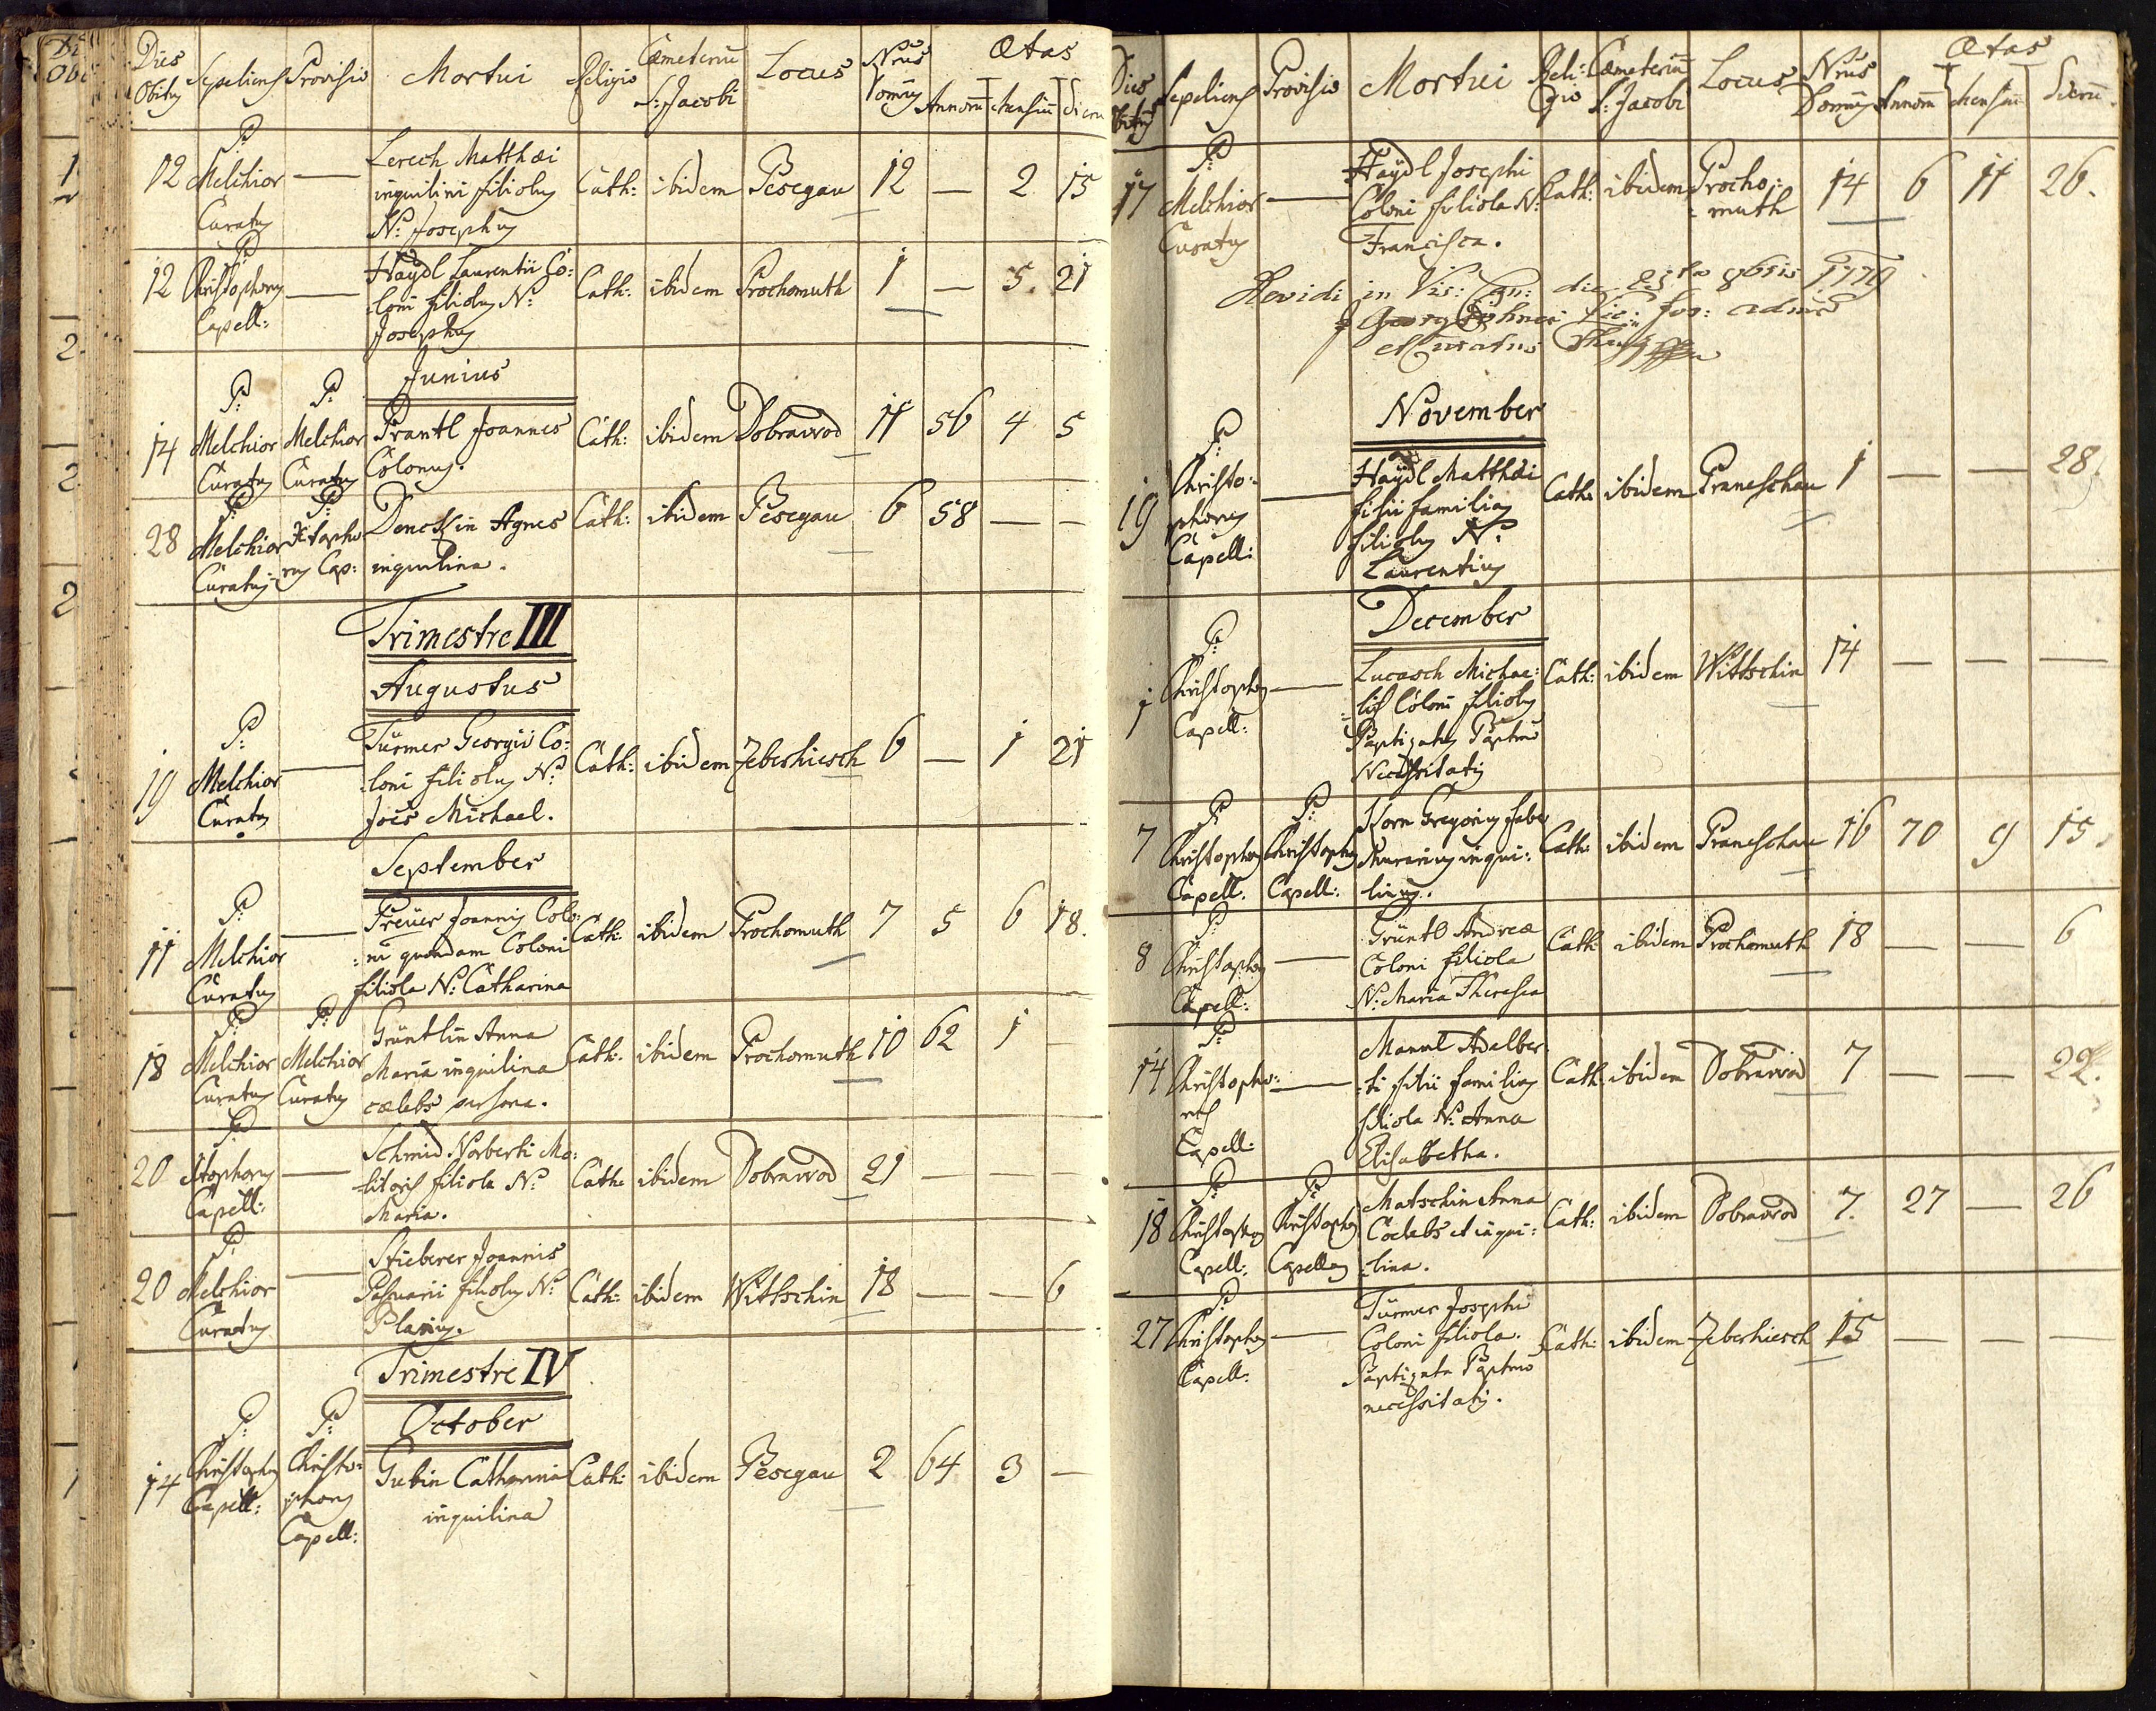 Dies Obitus Sepeliens Provisio Mortui Religio Cæmeteriū S: Jacobi Locus Nrus Domus Ætas Annorū Mensiū Dierū
12 P: Melchior Curatus — Lerch Matthæi
inquilini filiolus
N: Josephus Cath: ibidem Pesegau 12 — 2 15
12 P: Christophorus Capell: — Haÿdl Laurentii Co:
:loni filiolus N:
Josephus Cath: ibidem Prochomuth 1 — 5. 21
Junius
14 P: Melchior Curatus P: Melchior Curatus Prantl Joannes
Colonus. Cath: ibidem Dobrawod 11 56 4 5
28 P: Melchior Curatus P: Xstopho
rus Cap: Agnes
inquilina. Cath: ibidem Pesegau 6 58 — —
Trimestre III
Augustus
19 P: Melchior Curatus — Türmer Georgii Co:
:loni filiolus N:
Joës Michael. Cath: ibidem Zeberhiesch 6 — 1 21
September
11 P: Melchior Curatus — Freüer Joannis Colo:
:ni quondam Coloni
filiola N: Catharina Cath: ibidem Prochomuth 7 5 6 18.
18 P: Melchior Curatus P: Melchior Curatus Grüntlin Anna
Maria inquilina
cælebs persona. Cath: ibidem Prochomuth 10 62 1 —
20 P: Xstophorus Capell: — Schmid Norberti Mo:
:litoris filiola N:
Maria. Cath: ibidem Dobrawod 21 — — —
20 P: Melchior Curatus — Stieberer Joannis
filiolus N:
Cath: ibidem Wittschin 18 — — 6
Trimestre IV
October
14 P: Christophorus Capell: P: Christo:
phorus
Capell: Gubin Catharina
inquilina Cath: ibidem Pesegau 2 64 3 —
Dies Obitus Sepeliens Provisio Mortui Reli:gio Cæmeteriū S: Jacobi Locus Nrus Domus Ætas Annorū Mensiū Dierū
17 P: Melchior Curatus — Haÿdl Josephi
Coloni filiola N:
Francisca. Cath: ibidem Procho:
:muth 14 6 11 26.
Revidi in Vis: Can: die 23 8bris 1779
Georg
November
19 P: Christo:
phorus
Capell: — Haÿdl Matthæi
filii familias
filiolus N:
Laurentius Cath: ibidem Praneschau 1 — — 28.
December
1 P: Christophorus Capell: — Lucasch Michae:
:lis Coloni filiolus
Baptizatus Baptmo
Necessitatis Cath: ibidem Wittschin 14 — — —
7 P: Christophorus Capell. P: Christophorus Capell: Korn Gregorius faber
Murarius inqui:
linus. Cath: ibidem Praneschau 16 70 9 15.
8 P: Christophorus Capell: — Grüntl Andreæ
Coloni filiola
N: Maria Theresia Cath: ibidem Prochomuth 18 — — 6
14 P: Christopho:
rus
Capell: — Mannl Adelber:
:ti filii familias
filiola N: Anna
Elisabetha. Cath: ibidem Dobrawod 7 — — 22.
18 P: Christophorus Capell: P: Christophorus Capellanus Matschin Anna
Coelebs et inqui:
:lina. Cath: ibidem Dobrawod 7. 27 — 26
27 P: Christophorus Capell: — Türmer Josephi
Coloni filiola.
Baptizata Baptmo
necessitatis. Cath: ibidem Zeberhiesch 15 — — —